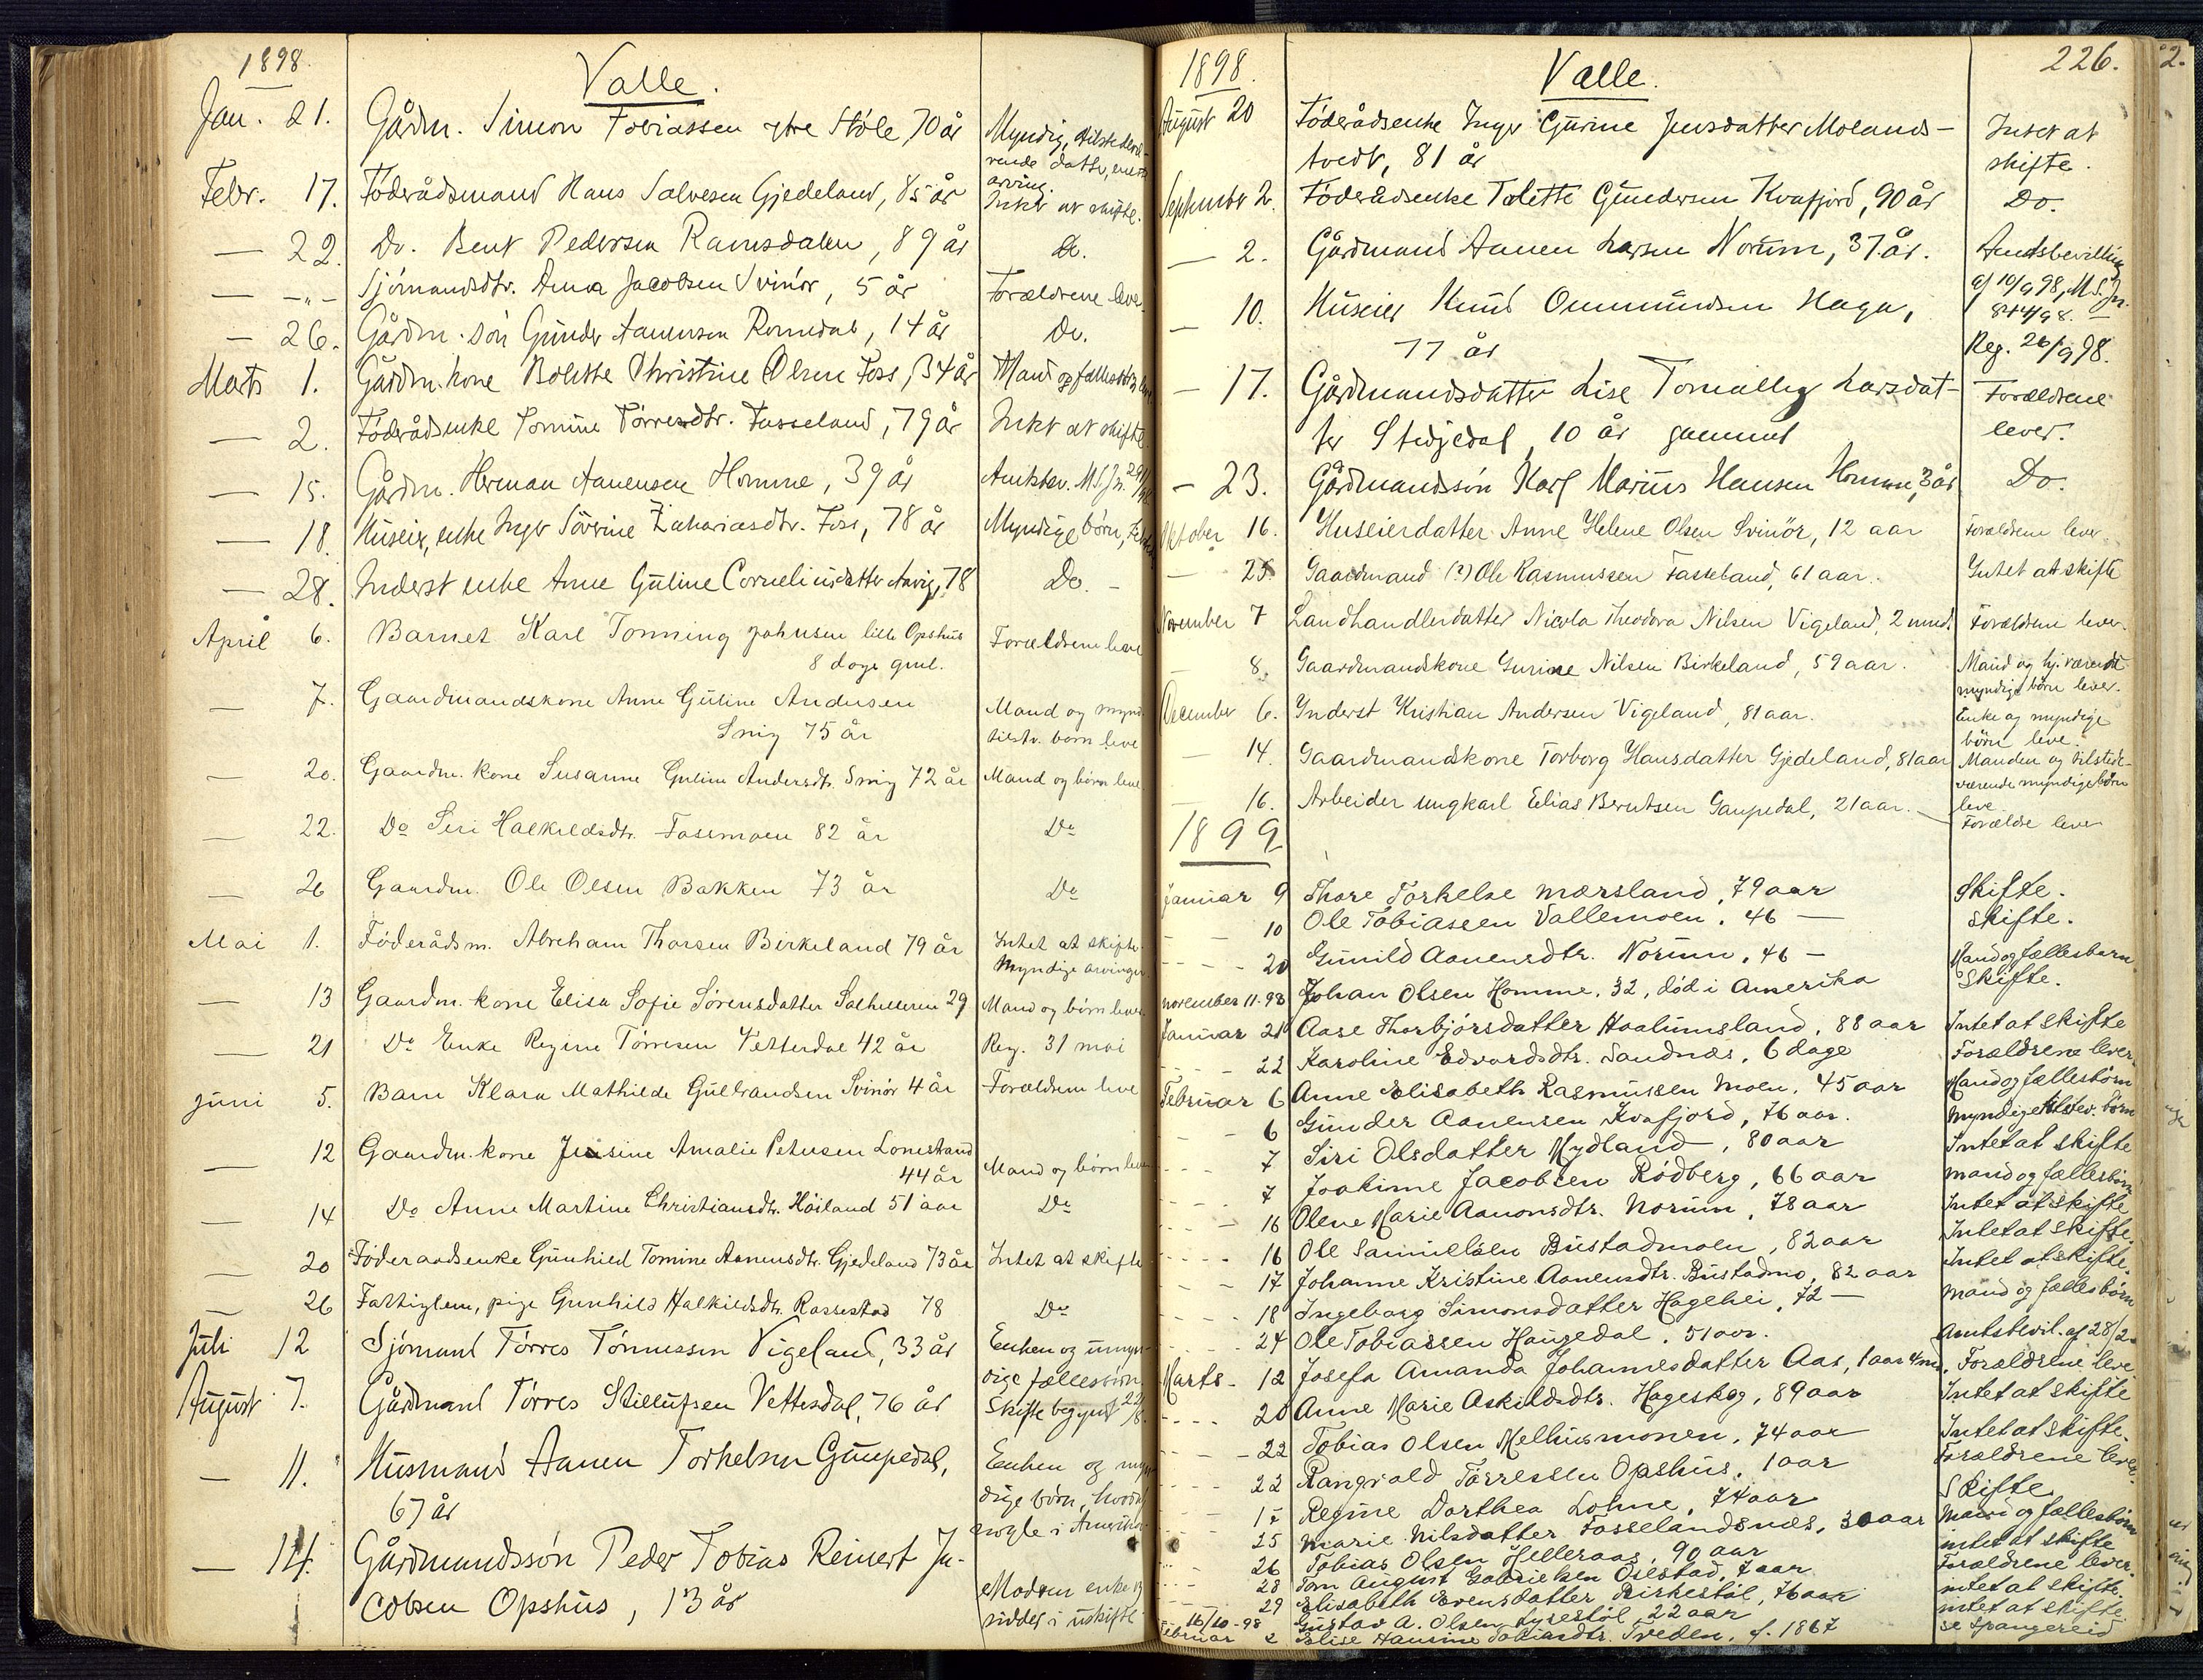 1898.
Valle.
Jan. 21. Gårdm. Simon Tobiassen ytre Støle, 70 år Myndig, tilstedeværende datter, enearving.
Febr. 17. Føderådsmand Hans Salvesen Gjedeland, 85 år Intet at skifte.
— 22. Do. Bent Pedersen Ramsdalen, 89 år Do.
— -„- Sjömandsdtr. Anna Jacobsen Svinör, 5 år Forældrene leve.
— 26. Gårdm. sön Gunder Aanensen Romedal, 14 år Do.
Marts 1. Gårdm. kone Bolette Christine Olsen Foss, 34 år Mand og fællesbörn leve.
— 2. Föderådsenke Tomine Törresdtr. Fasseland, 79 år Intet at skifte
— 15. Gårdm. Herman Aanensen Homme, 39 år Amtsbev. M.S.Jn.
— 18. Huseier, enke Inger Sörine Zachariasdtr. Foss, 78 år Myndige börn,
— 28. Inderst enke Anne Guline Corneliusdatter Aavig, 78 Do. -
April 6. Barnet Karl Tonning Johnsen lille Opshus
8 dage gml. Forældrene leve
— 7. Gaardmandskone Anne Guline Andersen
Snig 75 år Mand og mynd.
tilstv. børn leve
— 20. Gaardm. kone Susanne Guline Andersdtr. Snig 72 år Mand og børn leve
— 22. Do Siri Halkildsdtr. Fossmoen 82 år Do
— 26 Gaardm. Ole Olsen Bakken 73 år Do
Mai 1. Föderådsm. Abraham Thorsen Birkeland 79 år Intet at skifte.
Myndige arvinger.
— 13 Gaardm. kone Elisa Sofie Sørensdatter 29 Mand og børn leve
— 21 Do Enke Regine Tørresen Vetterdal 42 år Reg. 31 mai
Juni 5. Barn Klara Mathilde Gulbrandsen Svinör 4 år Forældrene leve
— 12 Gaardm. kone Jensine Amalie Petersen Lonestrand
44 år Mand og børn leve
— 14 Do Anne Martine Christiansdtr. Höiland 51 aar Do
— 20 Föderaadsenke Gunhild Tomine Aanensdtr. Gjedeland 73 år Intet at skifte
— 26 Fattiglem, pige Gunhild Halkildsdtr. Rossestad 78 Do
Juli 12 Sjömand Törres Tönnessen Vigeland, 33 år Enken og umyndige fællesbörn
August 7. Gårdmand Törres Stillufsen Vettesdal, 76 år Skifte begynt 22/8.
— 11. Husmand Aanen Torkelsen Gaupedal,
67 år Enken og myndige börn, hvoraf
nogle i Amerika
— 14. Gårdmandssön Peder Tobias Reinert Ja-
cobsen Opshus, 13 år Modren enke og
sidder i uskifte
1898.
Valle.
226.
August 20 Föderådsenke Inger Gurine Jensdatter Molands-
tvedt, 81 år Intet at
skifte.
September 2. Föderådsenke Tolette Gundersen Kvafjord, 90 år Do.
— 2. Gårdmand Aanen Larsen Norum, 37 år. Amtsbevilling
af 10/9 98, M.S.Jn.
844/98.
— 10. Huseier Knud Ommundsen Haga,
77 år Reg. 26/9 98.
— 17. Gårdmandsdatter Lise Tomalie Larsdat-
ter Stedjedal, 10 år gammel Forældrene
lever.
— 23. Gårdmandssön Karl Marius Hansen Homme, 3 år Do.
Oktober 16. Huseierdatter Anne Helene Olsen Svinör, 12 aar Forældrene lever.
— 25. Gaardmand (?) Ole Rasmussen Fasseland, 61 aar. Intet at skifte
November 7 Landhandlerdatter Nicola Theodora Nilsen Vigeland, 2 mnd. Forældrene lever.
— 8. Gaardmandskone Gurine Nilsen Birkeland, 59 aar. Mand og hj. værende
myndige börn lever.
December 6. Inderst Kristian Andersen Vigeland, 81 aar. Enke og myndige
börn leve.
— 14. Gaardmandskone Torborg Hansdatter Gjedeland, 81 aar Manden og tilstede-
værende myndige börn
leve
— 16. Arbeider ungkarl Elias Berntsen Gaupedal, 21 aar. Forældre lever
1899
Januar 9 Thore Torkelse Mærsland, 79 aar Skifte.
— 10 Ole Tobiassen Vallemoen, 46 — Skifte.
— 20 Gunild Aanensdtr. Norum, 46 — Mand og fællesbarn.
November 11.98 Johan Olsen Homme, 32, död i Amerika Skifte.
Januar 21 Aase Thorbjörsdatter Haalumsland, 88 aar Intet at skifte
— 22 Karoline Edvardsdtr. Sandnæs, 6 dage Forældrene lever.
Februar 6 Anne Elisabeth Rasmussen Moen, 45 aar Mand og fællesbörn
— 6 Gunder Aanensen Kvafjord, 76 aar. Myndige tilstev. börn
— 7 Siri Olsdatter Mydland, 80 aar Intet at skifte
— 7 Joakime Jacobsen Rödberg, 66 aar Mand og fællesbörn
— 16 Olene Marie Aanonsdtr. Norum, 78 aar Intet at skifte
— 16 Ole Samuelsen Bustadmoen, 82 aar Intet at skifte.
— 17 Johanne Kristine Aanensdtr. Bustadmo, 82 aar Intet at skifte.
— 18 Ingeborg Simonsdatter Hagehei, 72 — Mand og fællesbörn
— 24 Ole Tobiassen Haugedal, 51 aar. Amtsbevil. af 28/2
Marts - 12 Josefa Amanda Johannesdatter Aas, 1 aar 4 m. Forældrene leve
— 20 Anne Marie Askildsdtr. Hageskog, 89 aar Intet at skifte
— 22 Tobias Olsen Melhusmonen, 74 aar Intet at skifte.
— 22 Rangvald Törressen Opshus, 1 aar Forældrene lever
— 17 Regine Dorthea Lohne, 74 aar Skifte
— 25 Marie Nilsdatter Fosselandsnæs, 30 aar Mand og fællesbörn
— 26 Tobias Olsen Helleraas, 90 aar intet at skifte
— 28 Tom August Gabrielsen Osestad, 7 aar Forældrene lever.
— 29 Elisabeth Evensdatter Birkestöl, 76 aar intet at skifte
16/10-98 Gustav A. Olsen Lyrestöl, 22 aar intet at skifte
Februar 2 Elise Hansine Tobiasdtr. Sveden, f. 1867 se Spangereid